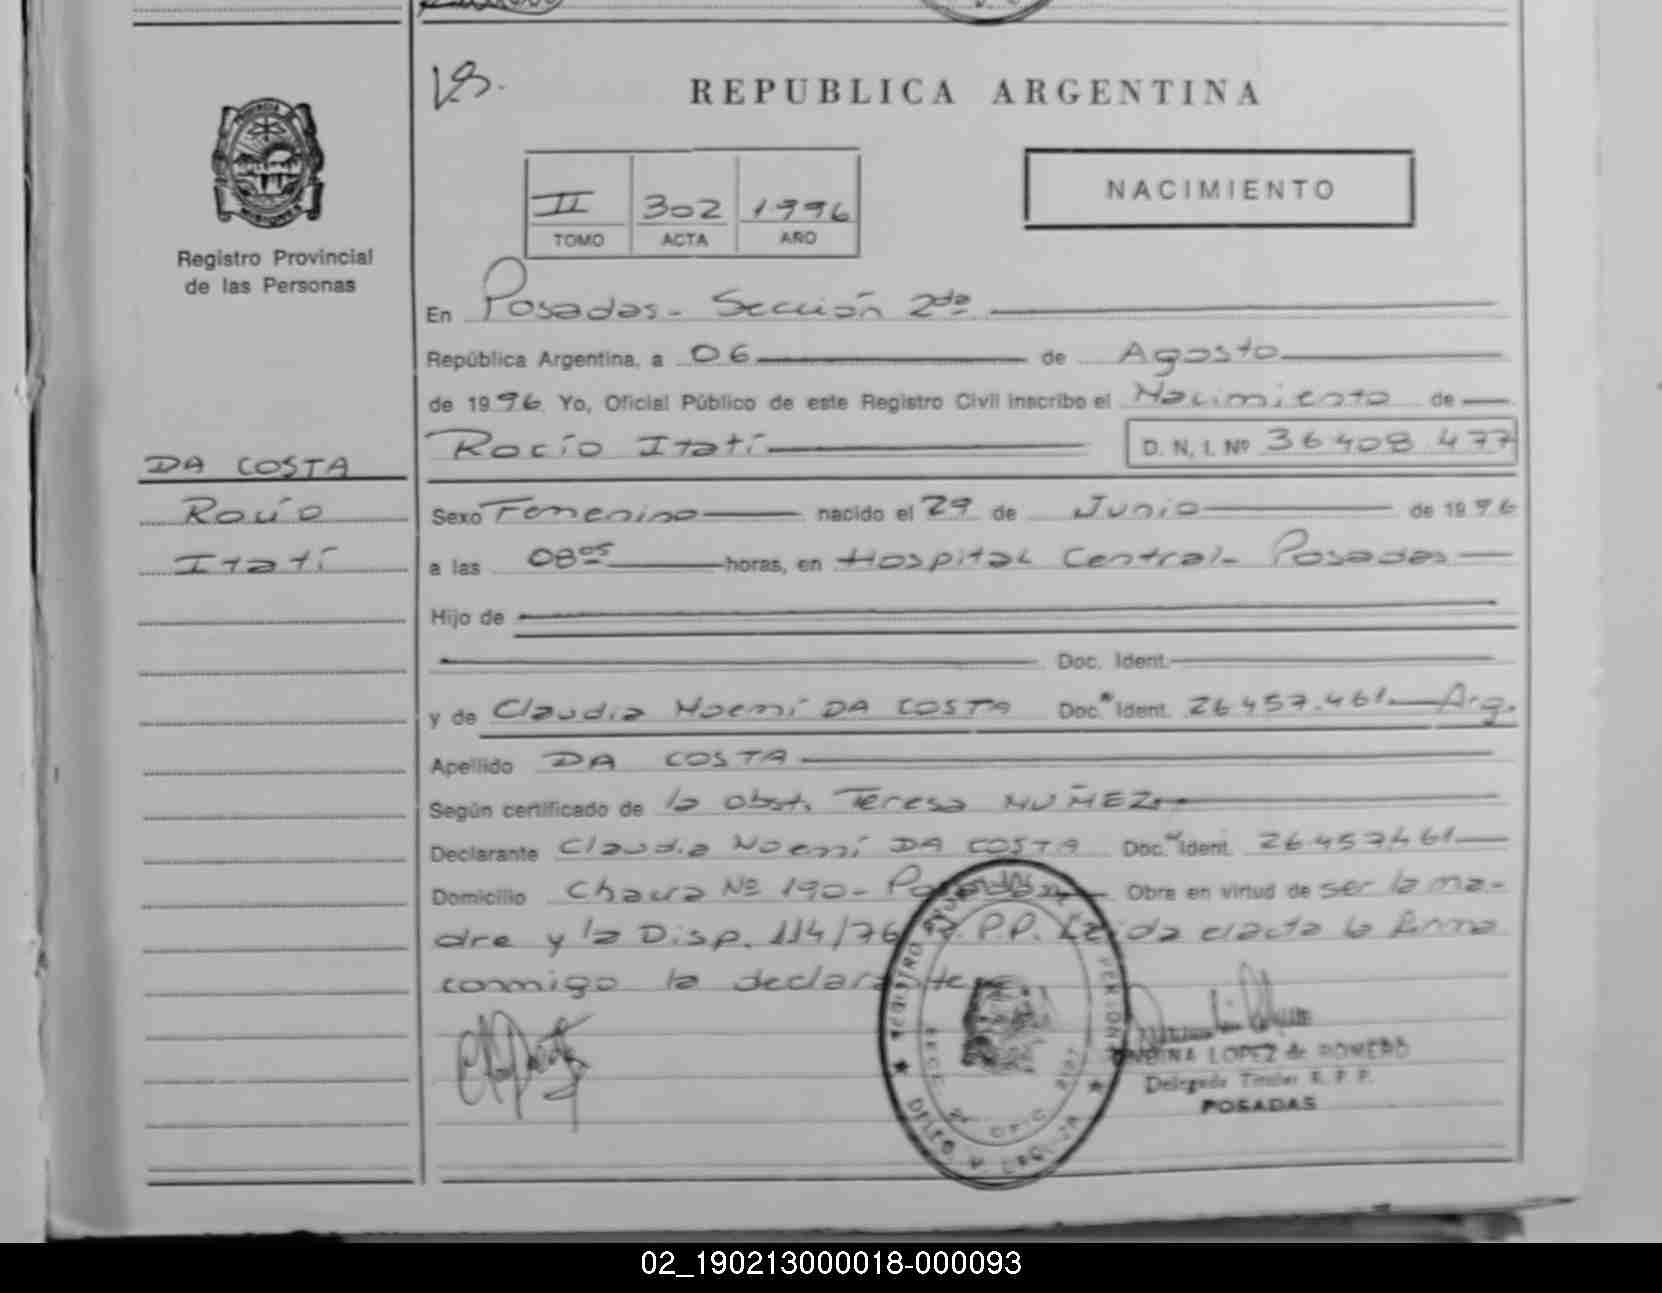 V.B.
REPUBLICA ARGENTINA
NACIMIENTO
II 302 1996
TOMO ACTA AÑO
Registro Provincial
de las Personas
En Posadas - Sección 2da
República Argentina, a 06 de Agosto
de 1996 Yo, Oficial Público de este Registro Civil inscribo el Nacimiento de
Rocío Itatí D. N. I. Nº 36408.477
DA COSTA
Rocío
Itatí
Sexo Femenino nacido el 29 de Junio de 1996
a las 08 05 horas, en Hospital Central - Posadas
Hijo de
Doc. Ident.
y de Claudia Noemí DA COSTA Doc. Ident. 26457.461 Arg.
Apellido DA COSTA
Según certificado de la obst. Teresa NUÑEZ
Declarante Claudia Noemí DA COSTA Doc. Ident. 26457461
Domicilio Nº 190 - Posadas Obra en virtud de ser la ma-
dre y la Disp. 114/76 P.P. Leída el acta la firma
conmigo la declarante
LOPEZ de ROMERO
Delegada Titular R. P. P.
POSADAS
02_190213000018-000093